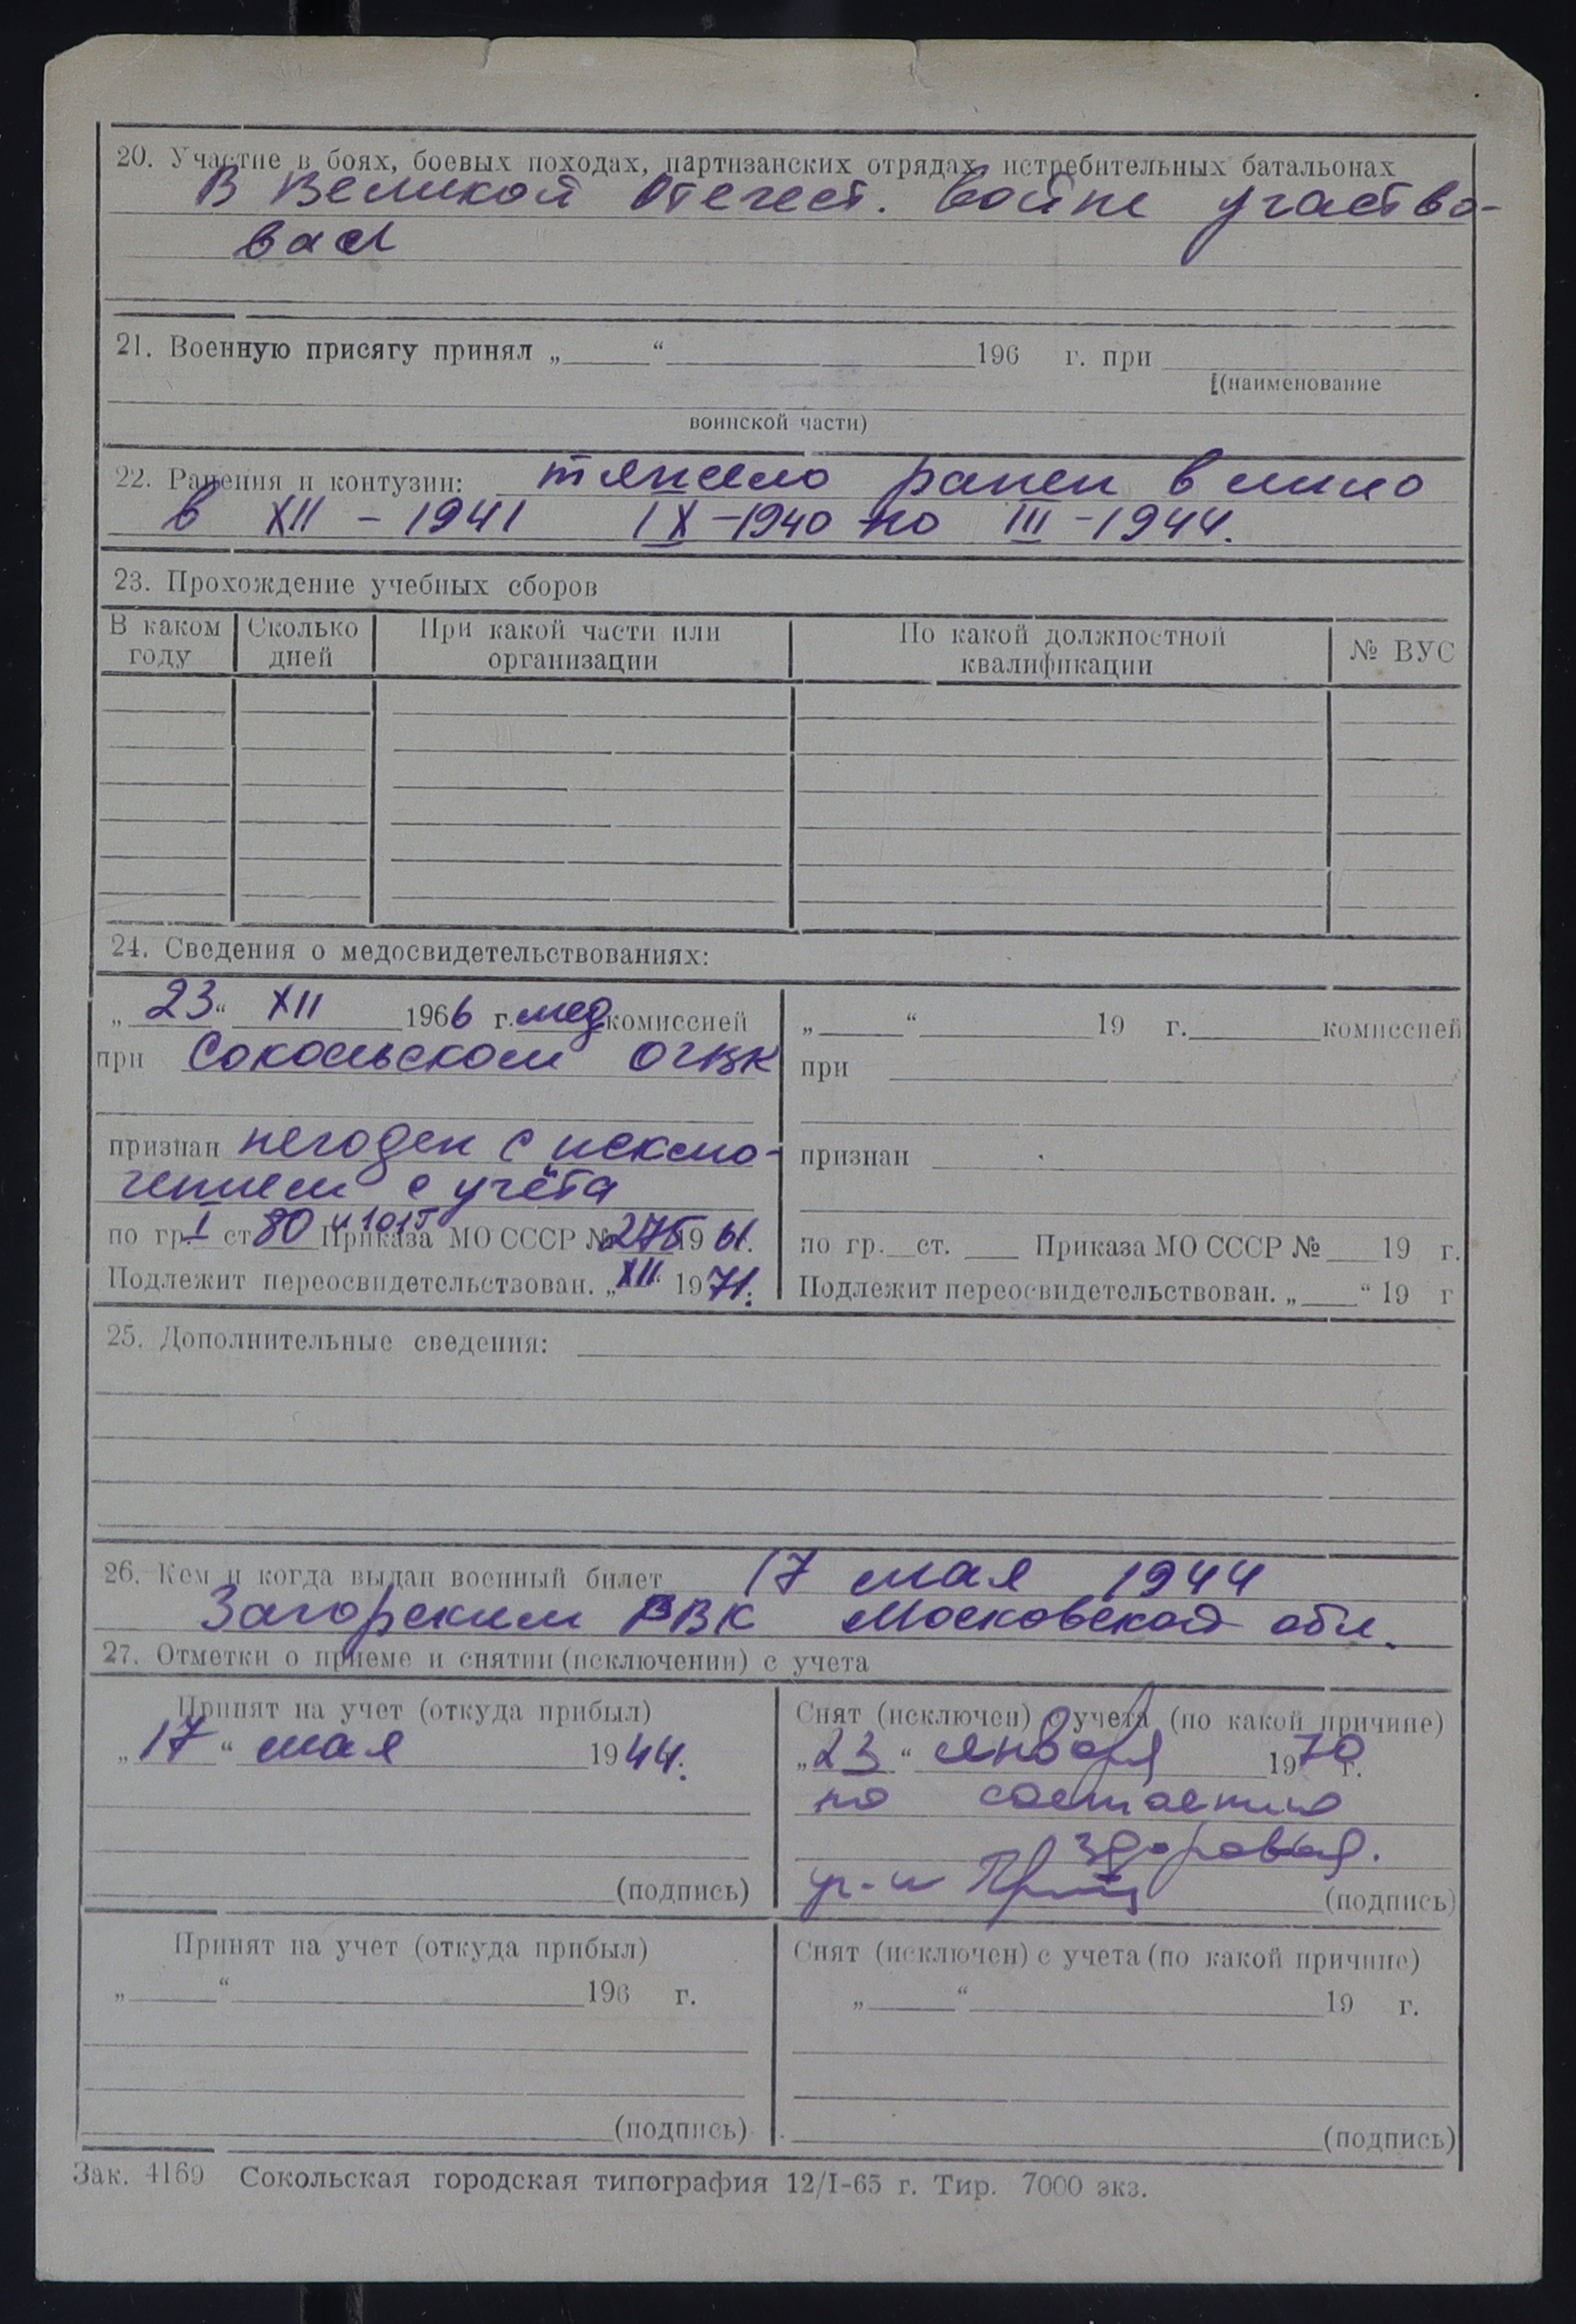 20. Участие в боях, боевых походах, партизанских отрядах, истребительных батальонах
В Великой Отечест. войне участво-
вал
21. Военную присягу принял „ “ 196 г. при
(наименование
воинской части)
22. Ранения и контузии: тяжело ранен в лицо
в XII – 1941 IX –1940 по III –1944.
23. Прохождение учебных сборов
В каком году
Сколько дней
При какой части или организации
По какой должностной квалификации
№ ВУС
24. Сведения о медосвидетельствованиях:
„ 23 “ XII 1966 г. мед комиссией
при Сокольском ОГВК
признан негоден с исклю-
чением с учёта
по гр. I ст 80 Приказа МО СССР № 275 19 61.
Подлежит переосвидетельствован. „ XII “ 1971.
„ “ 19 г. комиссией
при
признан
по гр. ст. Приказа МО СССР № 19 г.
Подлежит переосвидетельствован. „ “ 19 г
25. Дополнительные сведения:
26. Кем и когда выдан военный билет 17 мая 1944
Загорским РВК Московской обл.
27. Отметки о приеме и снятии (исключении) с учета
Принят на учет (откуда прибыл)
„ 17 “ мая 1944.
(подпись)
Снят (исключен) с учета (по какой причине)
„ 23 “ января 1970 г.
по состоянию
здоровья.
(подпись)
Принят на учет (откуда прибыл)
„ “ 196 г.
(подпись)
Снят (исключен) с учета (по какой причине)
„ “ 19 г.
(подпись)
Зак. 4169 Сокольская городская типография 12/I-65 г. Тир. 7000 экз.